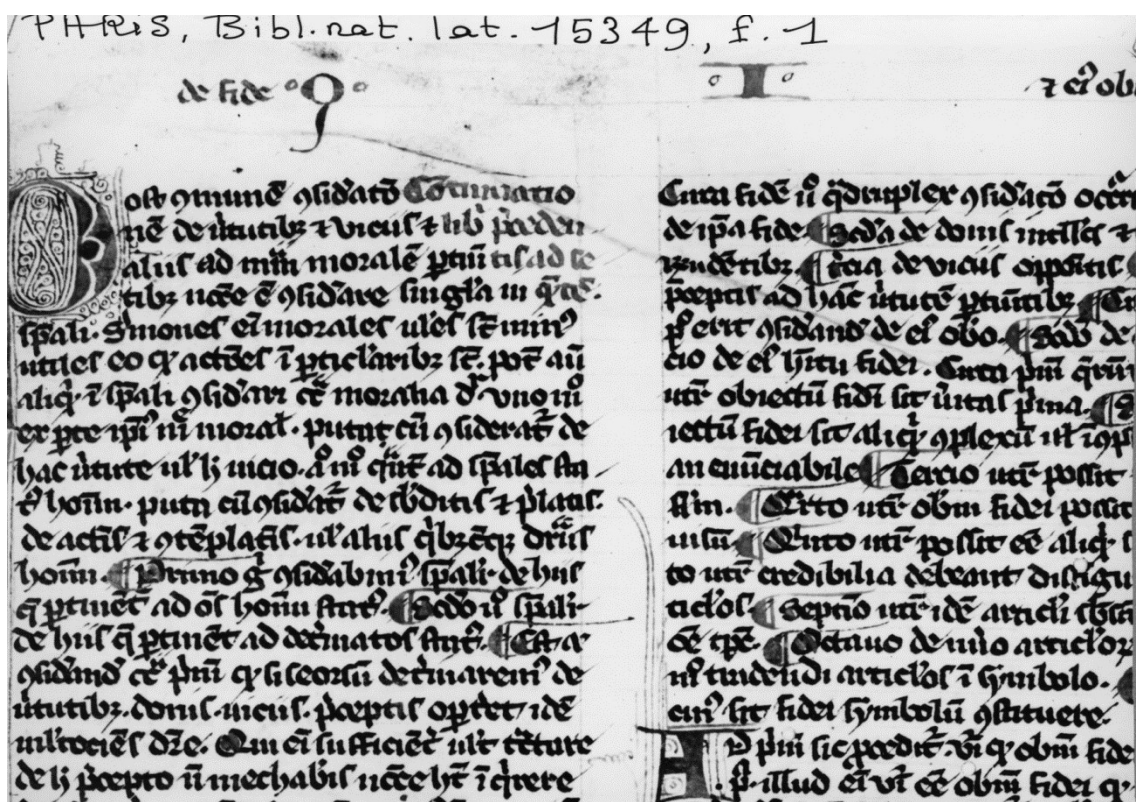 PARIS, Bibl. nat. lat. 15349, f. 1
de fide q I ⁊ eiꝰ obi
Post ꝯmunē ꝯsid'atō Cōtinuatio
nē de ũtutibꝫ ⁊ viciis ⁊ libͥ p̄ceden
aliis ad mām moralē ꝑtinētis ad se
tibꝫ nccē ē ꝯsid'are singl'a in q̄tē.
spāli. S'mones eī morales ul'es sūt minꝰ
utiles eo ꝙ actōes ī ꝑticl'aribꝫ sūt. pōt aūt
aliqͥd ī spāli ꝯsid'ari cͥᵃ moralia dr̄ uno mº
ex ꝑte ipīꝰ mē moral'. puta cū ꝯsiderat᷑ de
hac ũtute ul' h' uicio. aº mº q̄ntū ad spāles sta
tꝰ hoīm. puta cū ꝯsid'at᷑ de sb'ditis ⁊ p̄latis.
de actīs ⁊ ꝯtēplatīs. ul' aliis qͥbꝫcūqꝫ dr̄ īs
hoīm. Primo gͦ ꝯsid'abimꝰ spāli' de hiis
q̄ ꝑtinēt ad oēs hoīm statꝰ. Scd'o uº spāli'
de hiis q̄ ꝑtinēt ad det'minatos statꝰ. Est aūt
ꝯsid'and' cͥᵃ p̄mū ꝙ si seorsū det'minaremꝰ de
ũtutibꝫ. donis. uiciis. p̄ceptis oport͡et idē
mltociēs dic̄e. Qui eī sufficient᷑ ult tͣctare
de h' p̄cepto nō mechab'is nccē ht̄ īqͥrere
Circa fidē uº q̄druplex ꝯsid'atō occͥrit
de ip̄a fide. Scd'a de donis intellcūs ⁊
ꝛndētibꝫ. t'cia de viciis oppositis
p̄ceptis ad hāc ũtutē ꝑtinētibꝫ. Ci
pͥꝰ erit ꝯsid'and' de eiꝰ obō. Scd'o de
cio de eiꝰ h'itu fidei. Circa p̄mū qͥrūt
ut᷑ obiectū fid'i sit ũitas p̄ma. S
iectū fidei sit aliqͥd ꝯplexū ul' īꝯpl
an enūciabile Tercio ut᷑ possit
fl'm. Qͣrto ut᷑ obm̄ fidei possit
uisū. Qͥnto ut᷑ possit eē aliqͥd s
to ut᷑ credibilia debeant distīgu
ticl'os. Septīo ut᷑ idē articl'i sb'sīt
oē tp̄s. Octauo de nūo articl'oꝝ
mº tradendi articl'os ī symbolo.
cuiꝰ sit fidei symbolū ꝯstituere.
AD p̄mū sic ꝓcedit᷑. vr̄ ꝙ obm̄ fide
illud eī vr̄ eē obm̄ fidei q